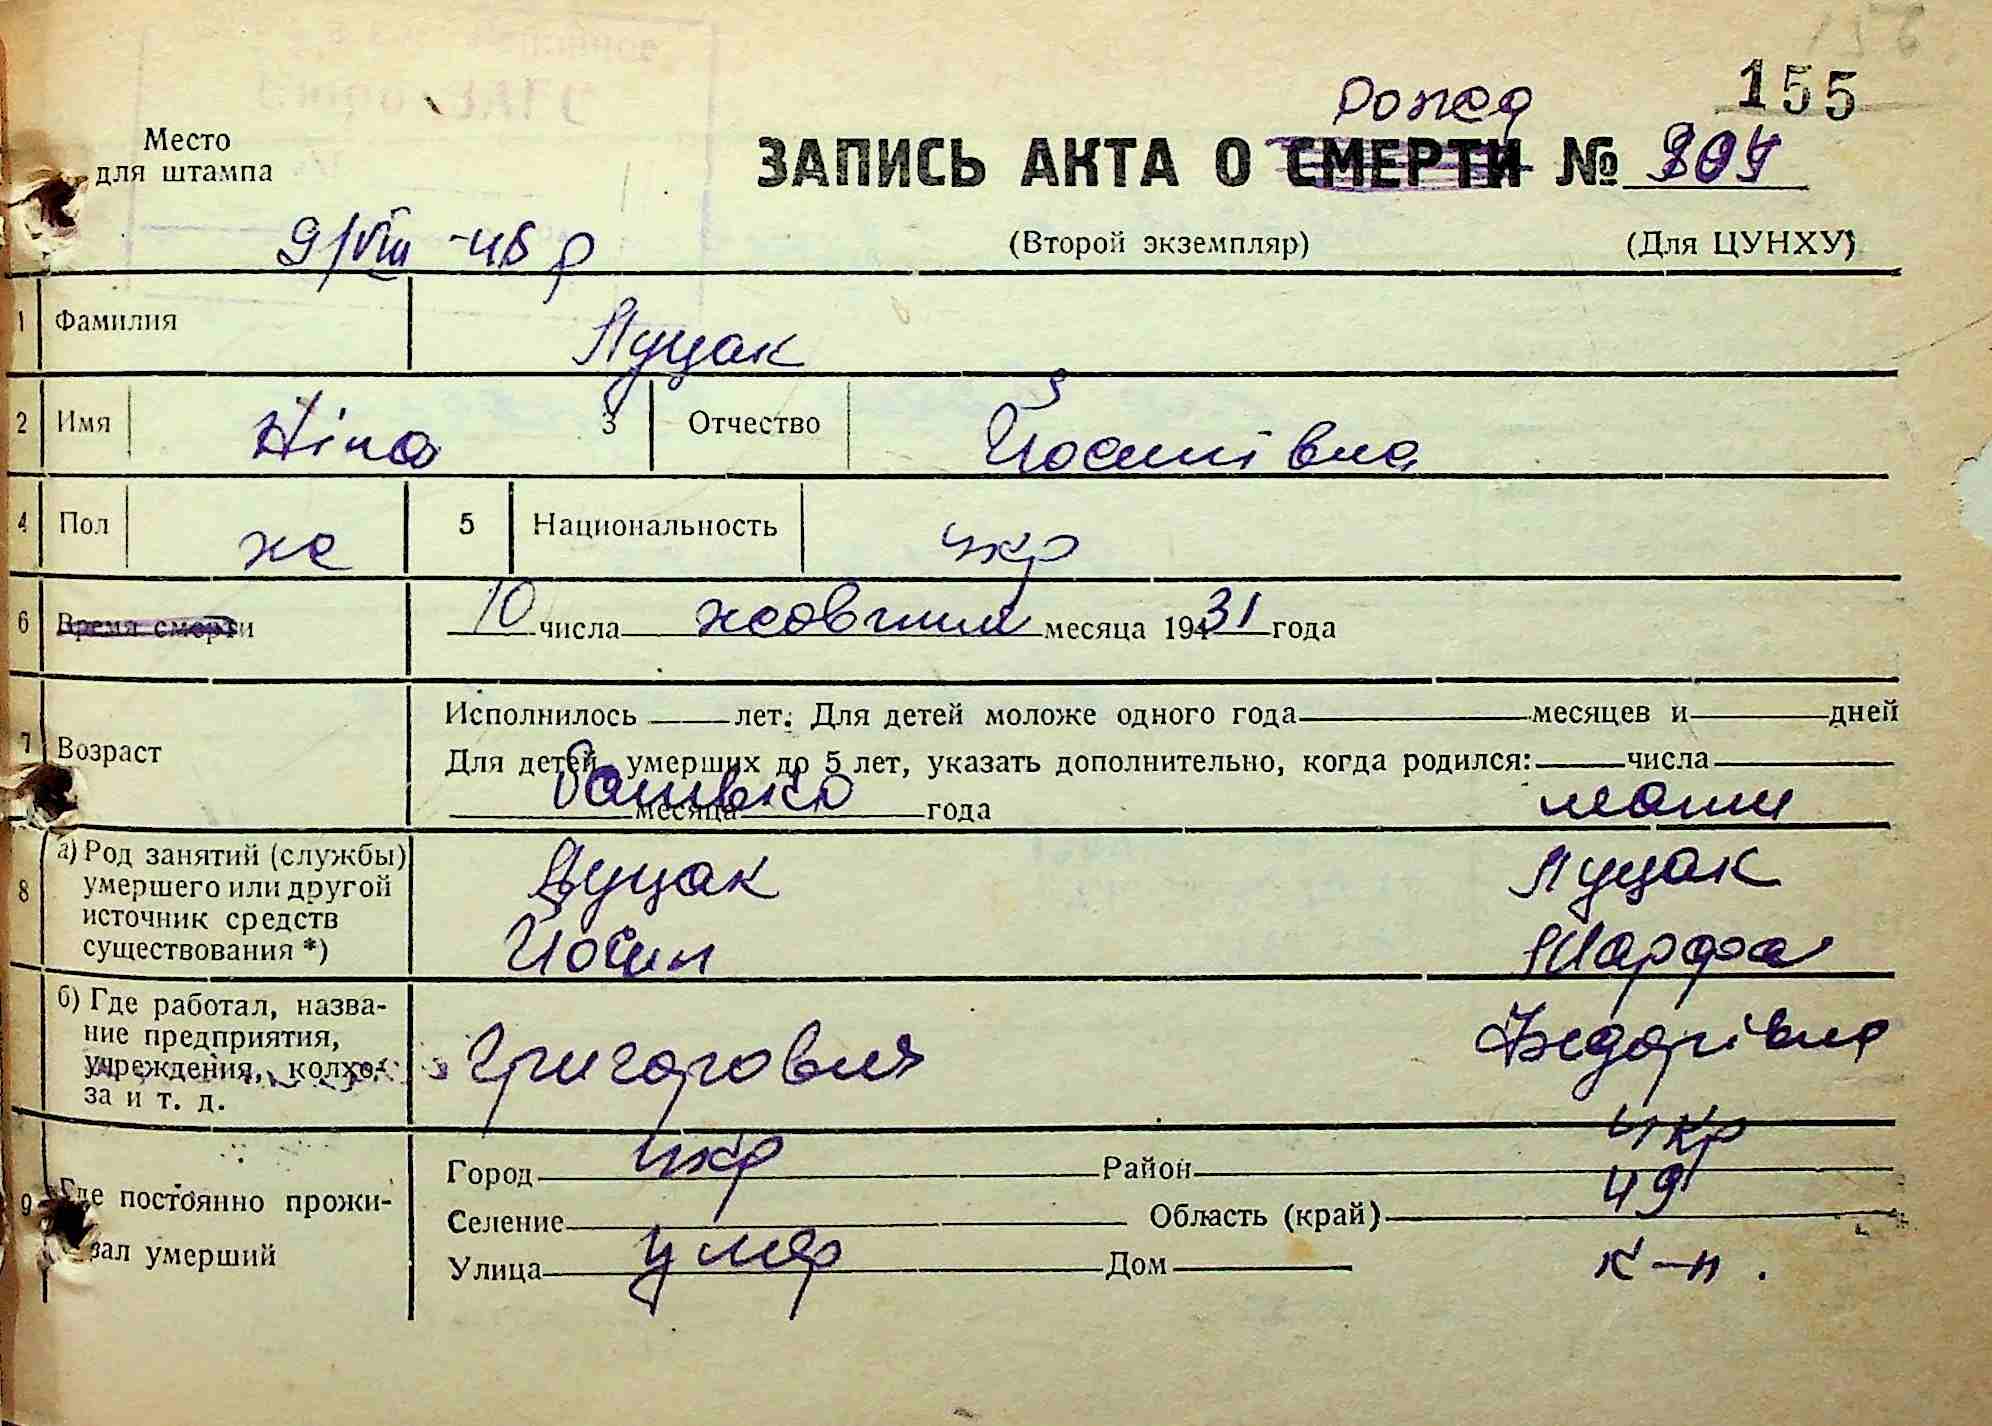 155
Рожд
Место
для штампа
ЗАПИСЬ АКТА О СМЕРТИ № 904
9/VIII -46 р
(Второй экземпляр) (Для ЦУНХУ)
1 Фамилия Луцак
2 Имя Ніна 3 Отчество Йосипівна
4 Пол ж 5 Национальность укр
6 Время смерти 10 числа жовтня месяца 19431 года
7 Возраст Исполнилось лет. Для детей моложе одного года месяцев и дней
Для детей, умерших до 5 лет, указать дополнительно, когда родился: числа
месяца года
Батько мати
8 а) Род занятий (службы) умершего или другой источник средств существования *)
Луцак Луцак
Йосип Марфа
б) Где работал, назва-
ние предприятия,
учреждения, колхо-
за и т. д.
Григорович Федорівна
9 Где постоянно прожи-
вал умерший
Город укр Район укр
Селение Область (край) 49
Улица умер Дом к-п.